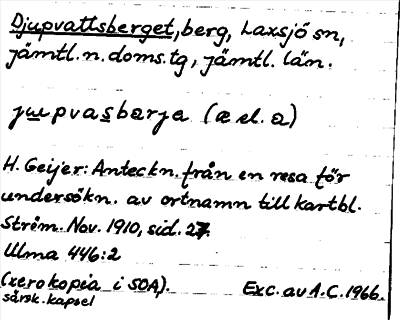 Djupvattsberget, berg, Laxsjö sn,
jämtl. n. doms. tg, jämtl. län.
jupvasbærja (æ el. a)
H. Geijer: Anteckn. från en resa för
undersökn. av ortnamn till kartbl.
Ström. Nov. 1910, sid. 27.
Ulma 446:2
(xerokopia i SOA). Exc. av A.C. 1966.
särsk. kapsel